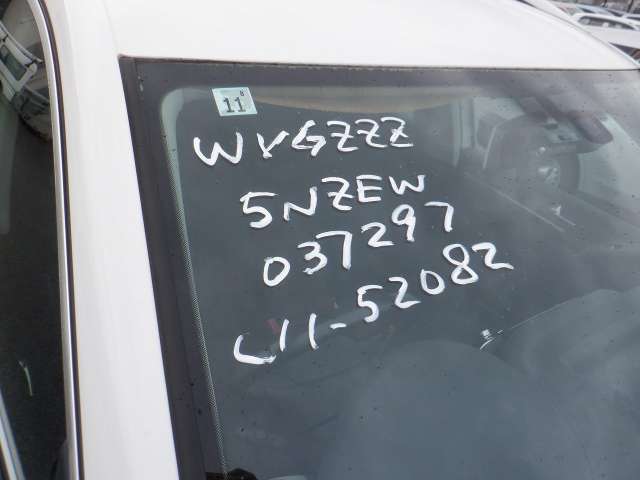 8
11
WVGZZZ
5NZEW
037297
L11-52082